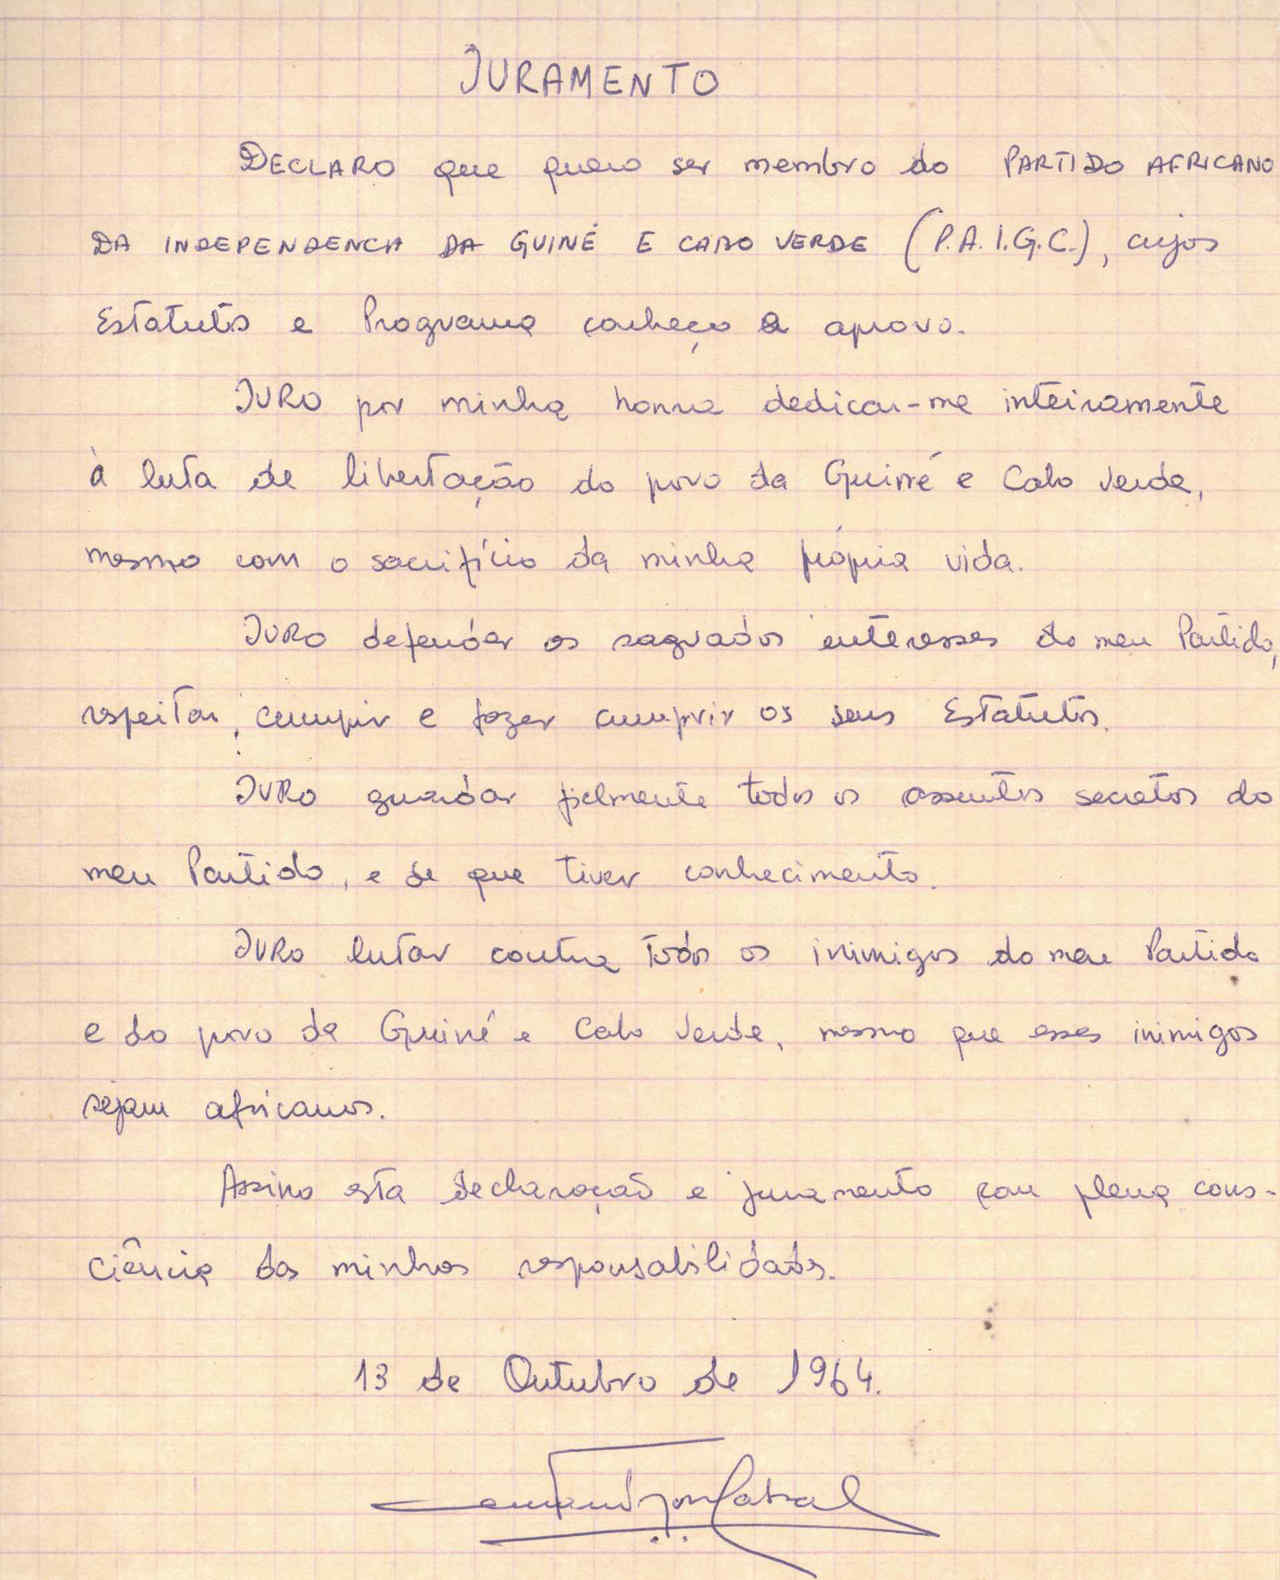 JURAMENTO
DECLARO que quero ser membro do PARTIDO AFRICANO
DA INDEPENDENCIA DA GUINÉ E CABO VERDE (P.A.I.G.C.), cujos
Estatutos e Programa conheço e aprovo.
JURO por minha honra dedicar-me inteiramente
à luta de libertação do povo da Guiné e Cabo Verde,
mesmo com o sacrifício da minha própria vida.
JURO defender os sagrados interesses do meu Partido,
respeitar, cumprir e fazer cumprir os seus Estatutos.
JURO guardar fielmente todos os assuntos secretos do
meu Partido, e de que tiver conhecimento.
JURO lutar contra todos os inimigos do meu Partido
e do povo da Guiné e Cabo Verde, mesmo que esses inimigos
sejam africanos.
Assino esta declaração e juramento com plena cons-
ciência das minhas responsabilidades.
13 de Outubro de 1964.
Cabral